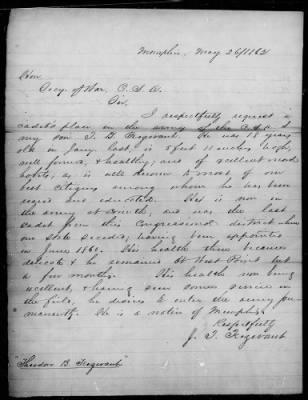 Memphis, May 26/1862
Hon.
Secy. of War, C.S.A.
Sir,
I respectfully request a
cadet's place in the army of the C.S.A for
my son T. B. Trezevant. He was 18 years
old in Jany. last, is 5 feet 11 inches high,
well formed, & healthy, and of excellent moral
habits, as is well known to most of our
best citizens among whom he has been
reared and educated. He is now in
the army at Corinth, and was the last
cadet from this Congressional district when
our State seceded, having been appointed
in June 1860. His health then became
delicate & he remained at West Point but
a few months. His health now being
excellent, & having seen some service in
the field, he desires to enter the army per-
manently. He is a native of Memphis.
Respectfully
J. T. Trezevant
"Theodore B. Trezevant"